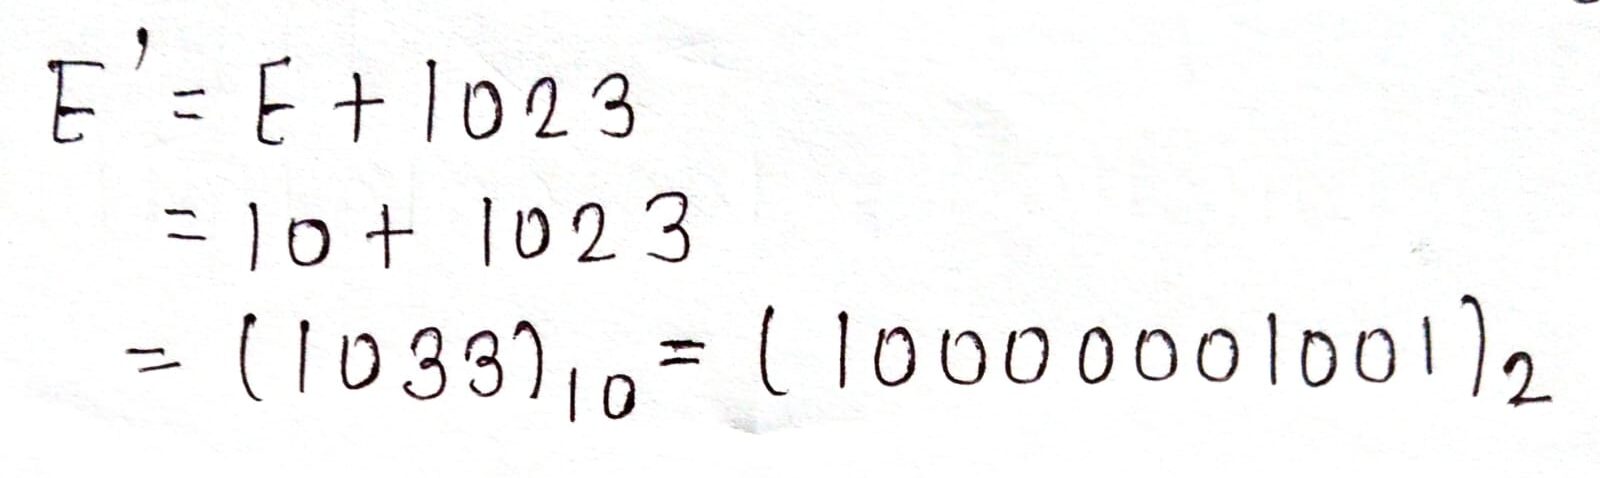 E' = E + 1023
= 10 + 1023
= (1033)₁₀ = (100000001001)₂